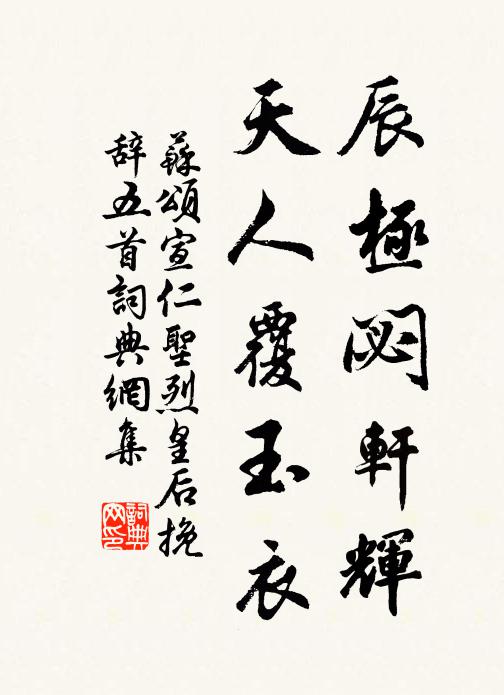 辰極閟軒輝
天人覆玉衣
蘇頌宣仁聖烈皇后挽
辭五首詞典網集
詞典
网印